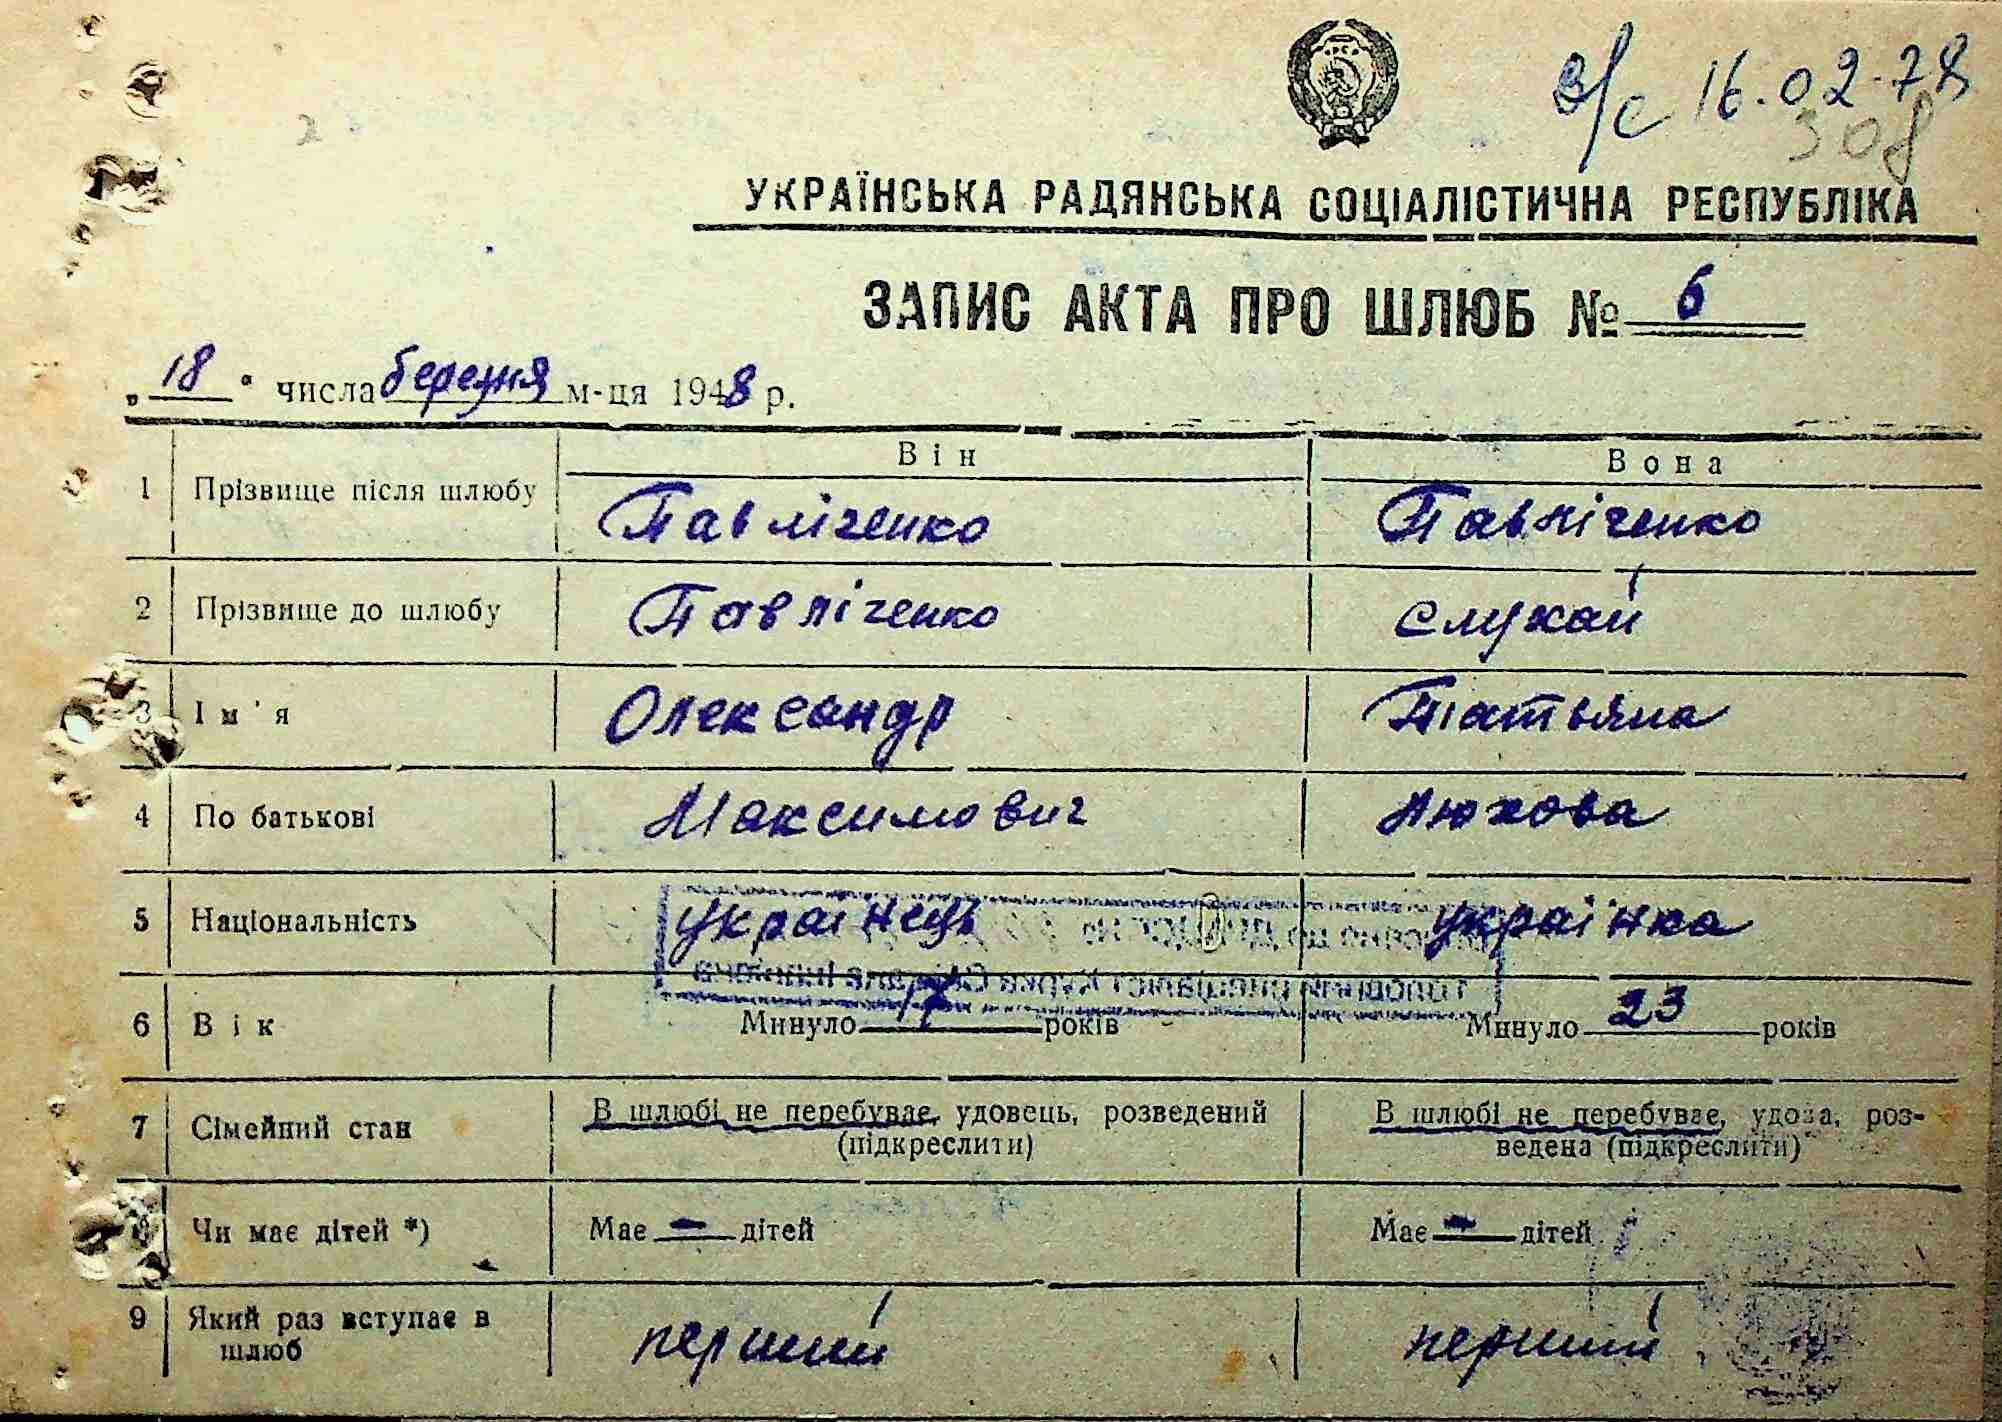 з/с 16.02.78
308
УКРАЇНСЬКА РАДЯНСЬКА СОЦІАЛІСТИЧНА РЕСПУБЛІКА
ЗАПИС АКТА ПРО ШЛЮБ № 6
„18“ числа березня м-ця 1948 р.
Він Вона
1 Прізвище після шлюбу Павліченко Павліченко
2 Прізвище до шлюбу Павліченко Слухай
3 Ім'я Олександр Татьяна
4 По батькові Максимович
5 Національність українець українка
6 Вік Минуло років Минуло 23 років
7 Сімейний стан В шлюбі не перебуває, удовець, розведений В шлюбі не перебуває, удова, роз-
(підкреслити) ведена (підкреслити)
8 Чи має дітей *) Має — дітей Має — дітей
9 Який раз вступає в перший перший
шлюб